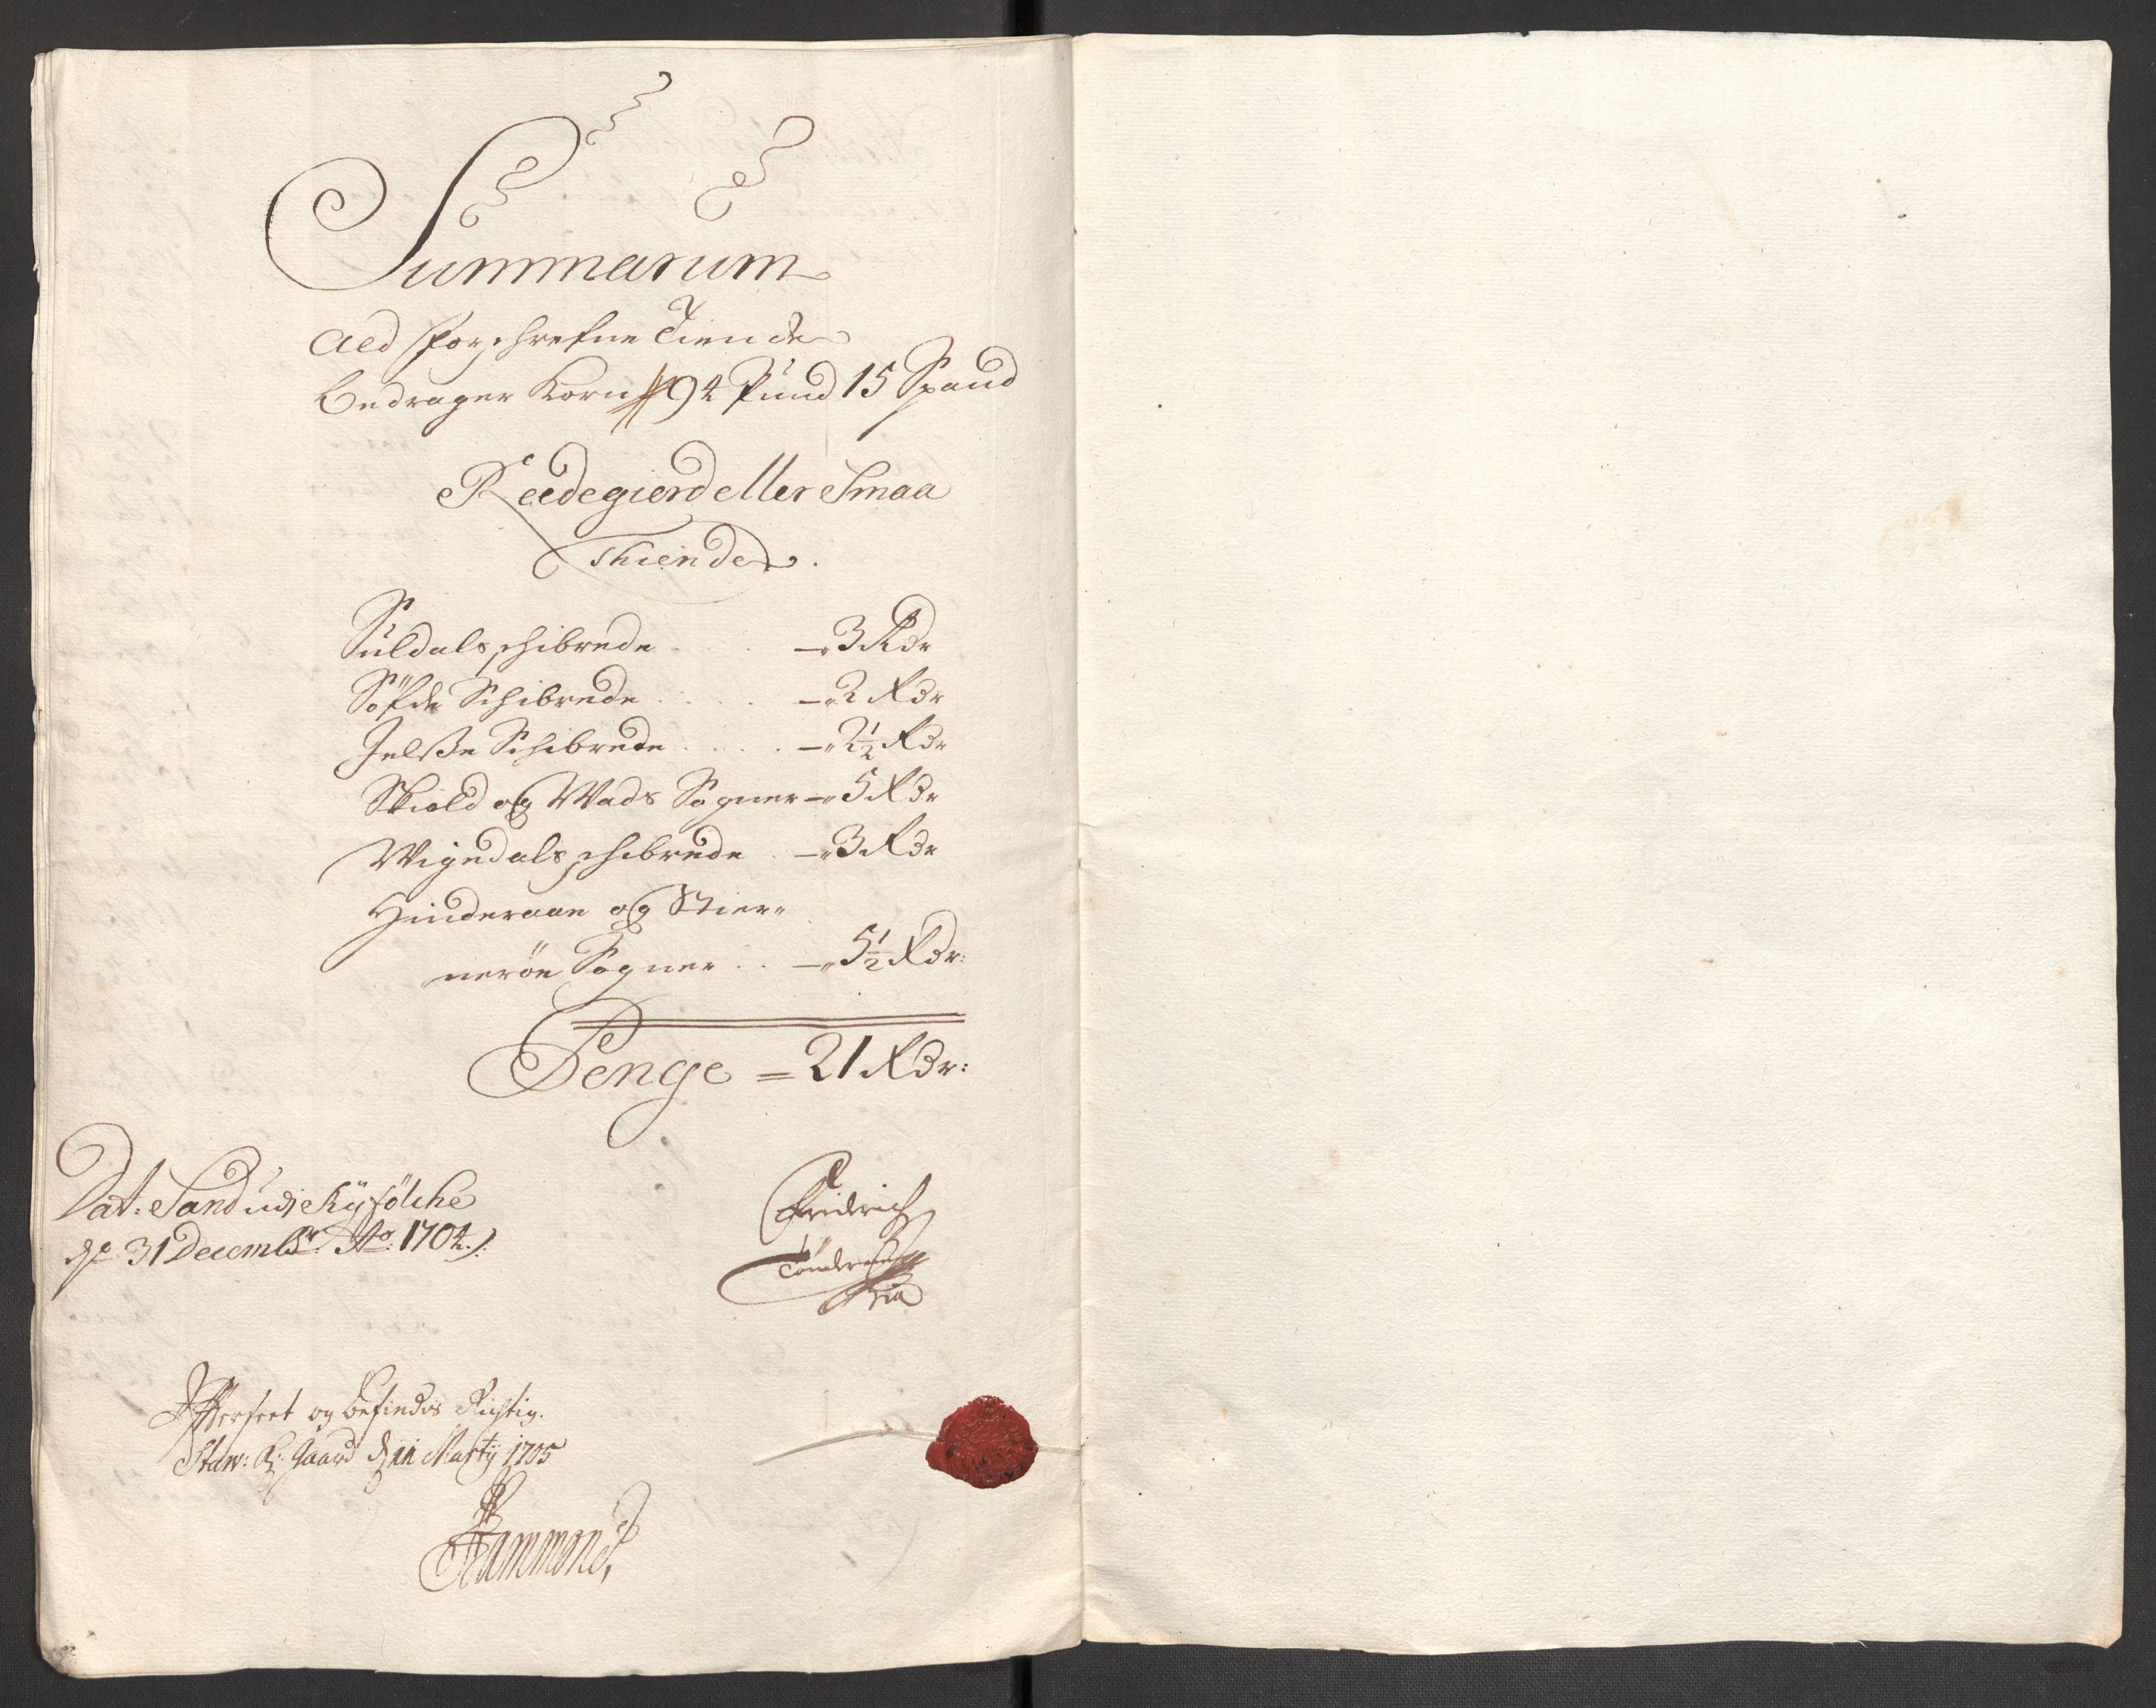 Summarum
Aed forschrefne Tiende
bedrager Korn 94 Pund 15 Spand
Reedegierd eller Smaa
Thiende.
Suldals schibrede . . . — 3 Rdr
Söfde Schibrede . . . . — 2 Rdr
Jelsße Schibrede . . . . — 2½ Rdr
Skiold og Wads Sogner — 5 Rdr
Wigedals schibrede . — 3 Rdr
Hinderaae og Stier-
neröe Sogner . . — 5½ Rdr:
Penge = 21 Rdr:
Dat: Sand udj Ryfölche
dn 31 Decembr Ao: 1704.
Fridrich
Effterseet og befindes Rigtig.
Staw: K: gaard d 11 Martij 1705
Hammond,